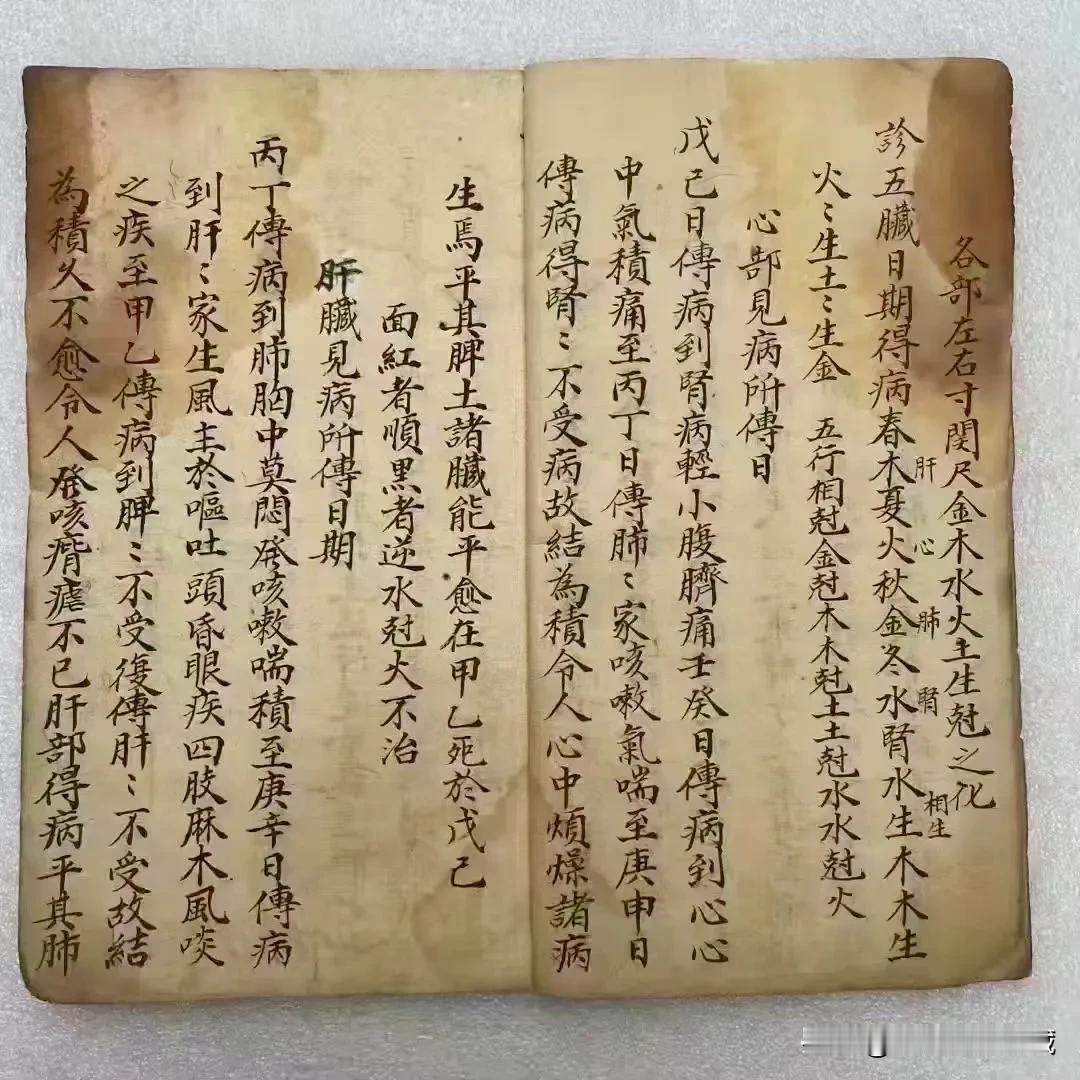 各部左右寸関尺金木水火土生尅之化
診五臟日期得病春木夏火秋金冬水腎水生木木生
肝 心 肺 腎 相生
火〻生土〻生金 五行相尅金尅木木尅土土尅水水尅火
心部見病所傳日
戊己日傳病到腎病輕小腹臍痛壬癸日傳病到心心
中氣積痛至丙丁日傳肺〻家咳嗽氣喘至庚申日
傳病得腎〻不受病故結為積令人心中煩燥諸病
生焉平其脾土諸臟能平愈在甲乙死於戊己
面紅者順黑者逆水尅火不治
肝臟見病所傳日期
丙丁傳病到肺胸中莫悶發咳嗽喘積至庚辛日傳病
到肝〻家生風主於嘔吐頭昏眼疾四肢麻木風啖
之疾至甲乙傳病到脾〻不受復傳肝〻不受故結
為積久不愈令人發咳瘠瘧不已肝部得病平其肺